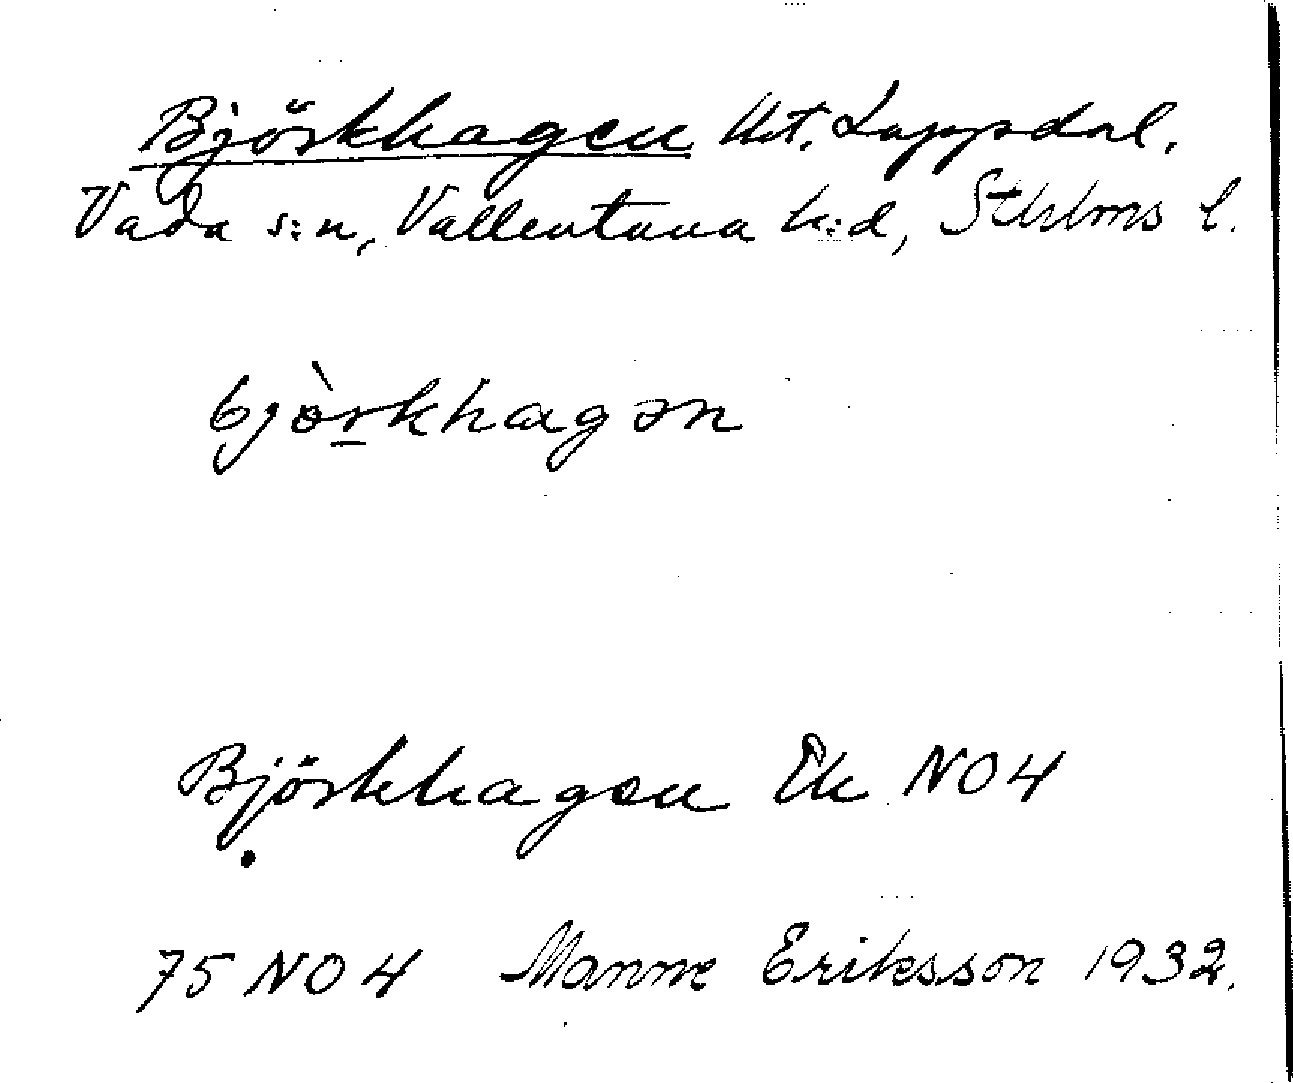 Björkhagen Ut. Lappdal.
Vada s:n, Vallentuna h:d, Sthlms l.
bjòrkhagən
Björkhagen Ek NO4
75 NO 4 Manne Eriksson 1932.